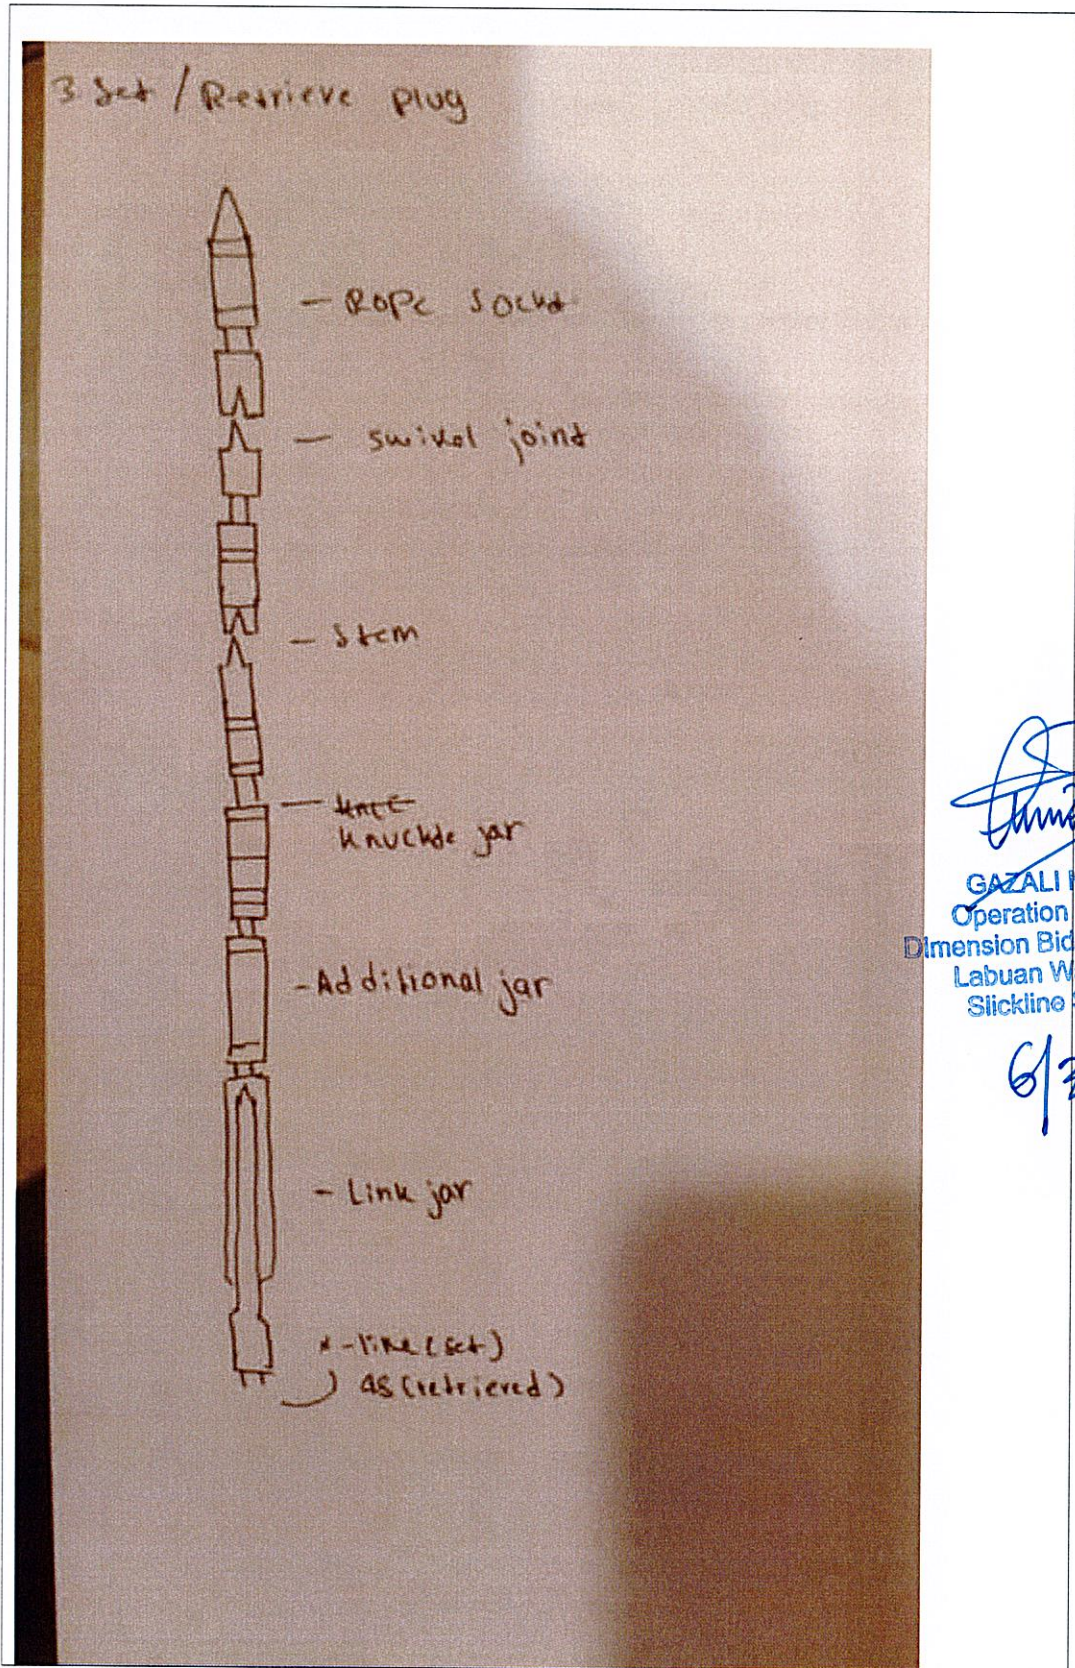 3 Set / Retrieve plug
- Rope socket
- swivel joint
- Stem
- Knuckle jar
- Additional jar
- Link jar
x-line (set)
GS (retrieved)
GAZALI
Operation
Dimension Bid
Labuan W
Slickline
6/7